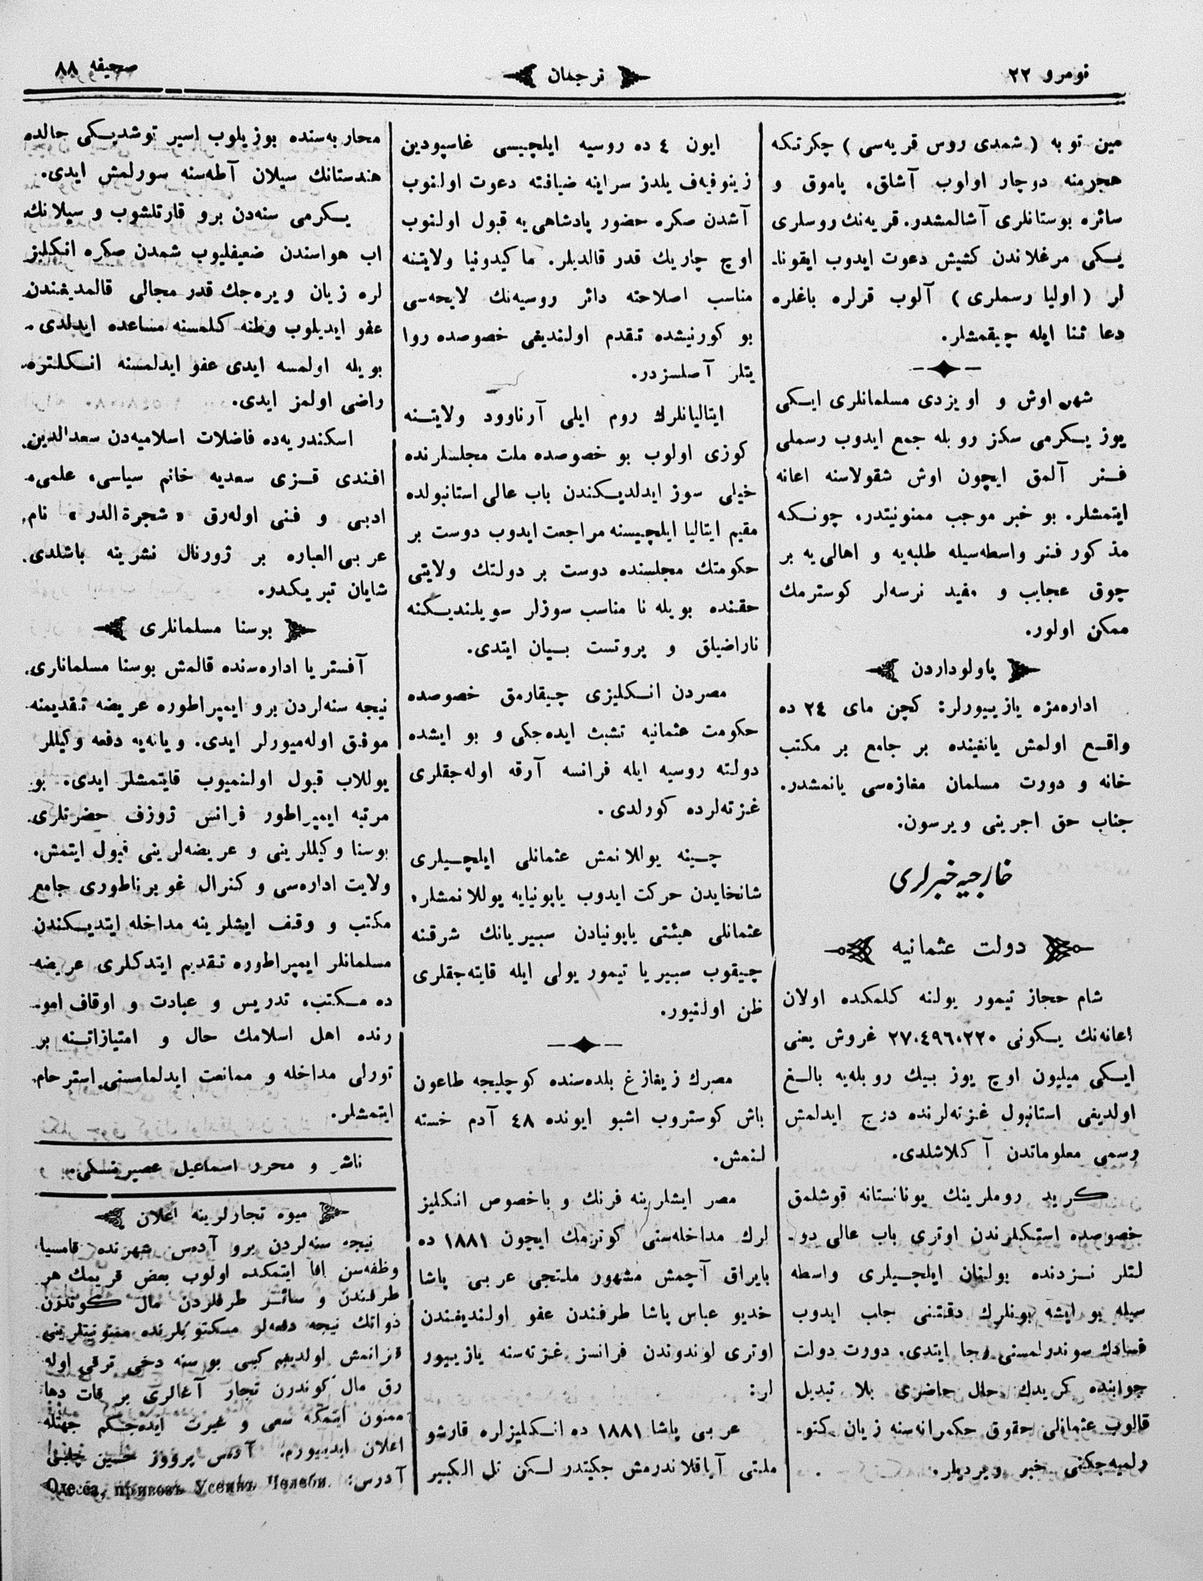 نومرو ٢٢
ترجمان
صحیفه ٨٨
مین توبه ( شمدی روس قریه‌سی ) چکرتکه
هجرمنه دوچار اولوب آشلق، پاموق و
سائره بوستانلری آشالمشدر. قریه‌نك روسلری
یکی مرغلاندن کشیش دعوت ایدوب ایقونا-
لر ( اولیا رسملری ) آلوب قرلره باغلره
دعا ثنا ایله چیقمشلر.
شهر اوش و اویزدی مسلمانلری ایکی
یوز یکرمی سکز روبله جمع ایدوب رسملی
فنر آلمق ایچون اوش شقولاسنه اعانه
ایتمشلر. بو خبر موجب ممنونیتدر، چونکه
مذکور فنر واسطه‌سیله طلبه‌یه و اهالی‌یه بر
چوق عجایب و مفید نرسه‌لر کوسترمك
ممکن اولور.
پاولوداردن
اداره‌مزه یازییورلر: کچن مای ٢٤ ده
واقع اولمش یانغینده بر جامع بر مکتب
خانه و دورت مسلمان مغازه‌سی یانمشدر.
جناب حق اجرینی ویرسون.
خارجیه خبرلری
دولت عثمانیه
شام حجاز تیمور یولنه کلمکده اولان
اعانه‌نك یکونی ٢٧٠٤٩٦٠٢٢٠ غروش یعنی
ایکی میلیون اوچ یوز بیك روبله‌یه بالغ
اولدیغی استانبول غزته‌لرنده درج ایدلمش
رسمی معلوماتدن آکلاشلدی.
کرید روملرینك یونانستانه قوشلمق
خصوصده استکلرندن اوتری باب عالی دو-
لتلر نزدنده بولنان ایلچیلری واسطه
سیله بو ایشه بونلرك دقتنی جلب ایدوب
فسادك سوندولمسنی رجا ایتدی. دورت دولت
جوابنده کریدك حال حاضری بلا تبدیل
قالوب عثمانلی حقوق حکمرانه‌سنه زیان کتو-
رلمیه‌جکنی خبر ویردیلر.
ایون ٤ ده روسیه ایلچیسی غاسپودین
زینوفیه‌ف یلدز سراینه ضیافته دعوت اولنوب
آشدن صکره حضور پادشاهی‌یه قبول اولنوب
اوچ چاریك قدر قالدیلر. ماکیدونیا ولایتنه
مناسب اصلاحته دائر روسیه‌نك لایحه‌سی
بو کورنیشده تقدم اولندیغی خصوصده روا
یتلر آصلسزدر.
ایتالیانلرك روم ایلی آرناوود ولایتنه
کوزی اولوب بو خصوصده ملت مجلسلرنده
خیلی سوز ایدلدیکندن باب عالی استانبولده
مقیم ایتالیا ایلچیسنه مراجعت ایدوب دوست بر
حکومتك مجلسنده دوست بر دولتك ولایتی
حقنده بویله نا مناسب سوزلر سویلندیکنه
ناراضیلق و پروتست بیان ایتدی.
مصردن انکلیزی چیقارمق خصوصده
حکومت عثمانیه تشبث ایده‌جکی و بو ایشده
دولته روسیه ایله فرانسه آرقه اوله‌جقلری
غزته‌لرده کورلدی.
چینه یوللانمش عثمانلی ایلچیلری
شانخایدن حرکت ایدوب یاپونیایه یوللانمشلر،
عثمانلی هیئتی یاپونیادن سبیریانك شرقنه
چیقوب سبیریا تیمور یولی ایله قایته‌جقلری
ظن اولنیور.
مصرك زیغازغ بلده‌سنده کوچلیجه طاعون
باش کوستروب اشبو ایونده ٤٨ آدم خسته
لنمش.
مصر ایشلرینه فرنك و باخصوص انکلیز
لرك مداخله‌سنی کوترمك ایچون ١٨٨١ ده
بایراق آچمش مشهور ملتجی عربی پاشا
خدیو عباس پاشا طرفندن عفو اولندیغندن
اوتری لوندوندن فرانسز غزته‌سنه یازییور
لر:
عربی پاشا ١٨٨١ ده انکلیزلره قارشو
ملتی آیاقلاندرمش جکیتدر لکن تل الکبیر
محاربه‌سنده بوزیلوب اسیر توشدیکی حالده
هندستانك سیلان آطه‌سنه سورلمش ایدی.
یکرمی سنه‌دن برو قارتلشوب و سیلانك
اب هواسندن ضعیفلیوب شمدن صکره انکلیز
لره زیان ویره‌جك قدر مجالی قالمدیغندن
عفو ایدیلوب وطنه کلمسنه مساعده ایدلدی.
بویله اولمسه ایدی عفو ایدلمسنه انکلتره
راضی اولمز ایدی.
اسکندریه‌ده فاضلات اسلامیه‌دن سعدالدین
افندی قزی سعدیه خانم سیاسی، علمی،
ادبی و فنی اوله‌رق «شجرةالدر» نام
عربی‌العباره بر ژورنال نشرینه باشلدی
شایان تبریکدر.
بوسنا مسلمانلری
آفستریا اداره‌سنده قالمش بوسنا مسلمانلری
نیجه سنه‌لردن برو ایمپراطوره عریضه تقدیمنه
موفق اوله‌میورلر ایدی. ویانه‌یه دفعه وکیللر
یوللاب قبول اولنمیوب قایتمشلر ایدی. بو
مرتبه ایمپراطور فرانس ژوزف حضرتلری
بوسنا وکیللرینی و عریضه‌لرینی قبول ایتمش.
ولایت اداره‌سی و کنرال غوبرناطوری جامع
مکتب و وقف ایشلرینه مداخله ایتدیکندن
مسلمانلر ایمپراطوره تقدیم ایتدکلری عریضه
ده مکتب، تدریس و عبادت و اوقاف امو-
رنده اهل اسلامك حال و امتیازاتنه بر
تورلی مداخله و ممانعت ایدلمامسنی استرحام
ایتمشلر.
ناشر و محرر اسماعیل عصپرنسکی.
میوه تجارلرینه اعلان
نیجه سنه‌لردن برو آدس شهرنده قامسیا
وظفه‌سن افا ایتمکده اولوب بعض قریمك هر
طرفندن و سائر طرفلردن مال کوندرن
ذواتك نیجه دفعه‌لو مکتوبلرنده ممنونیتلرینی
قزانمش اولدیغم کبی بو سنه دخی ترقی اوله
رق مال کوندرن تجار آغالری بر قات دها
ممنون ایتمکه سعی و غیرت ایده‌جکم جهتله
اعلان ایدییورم. آدس پرووز حسین چلبی
آدرس: Одесса, привозъ Усеинъ Челеби.